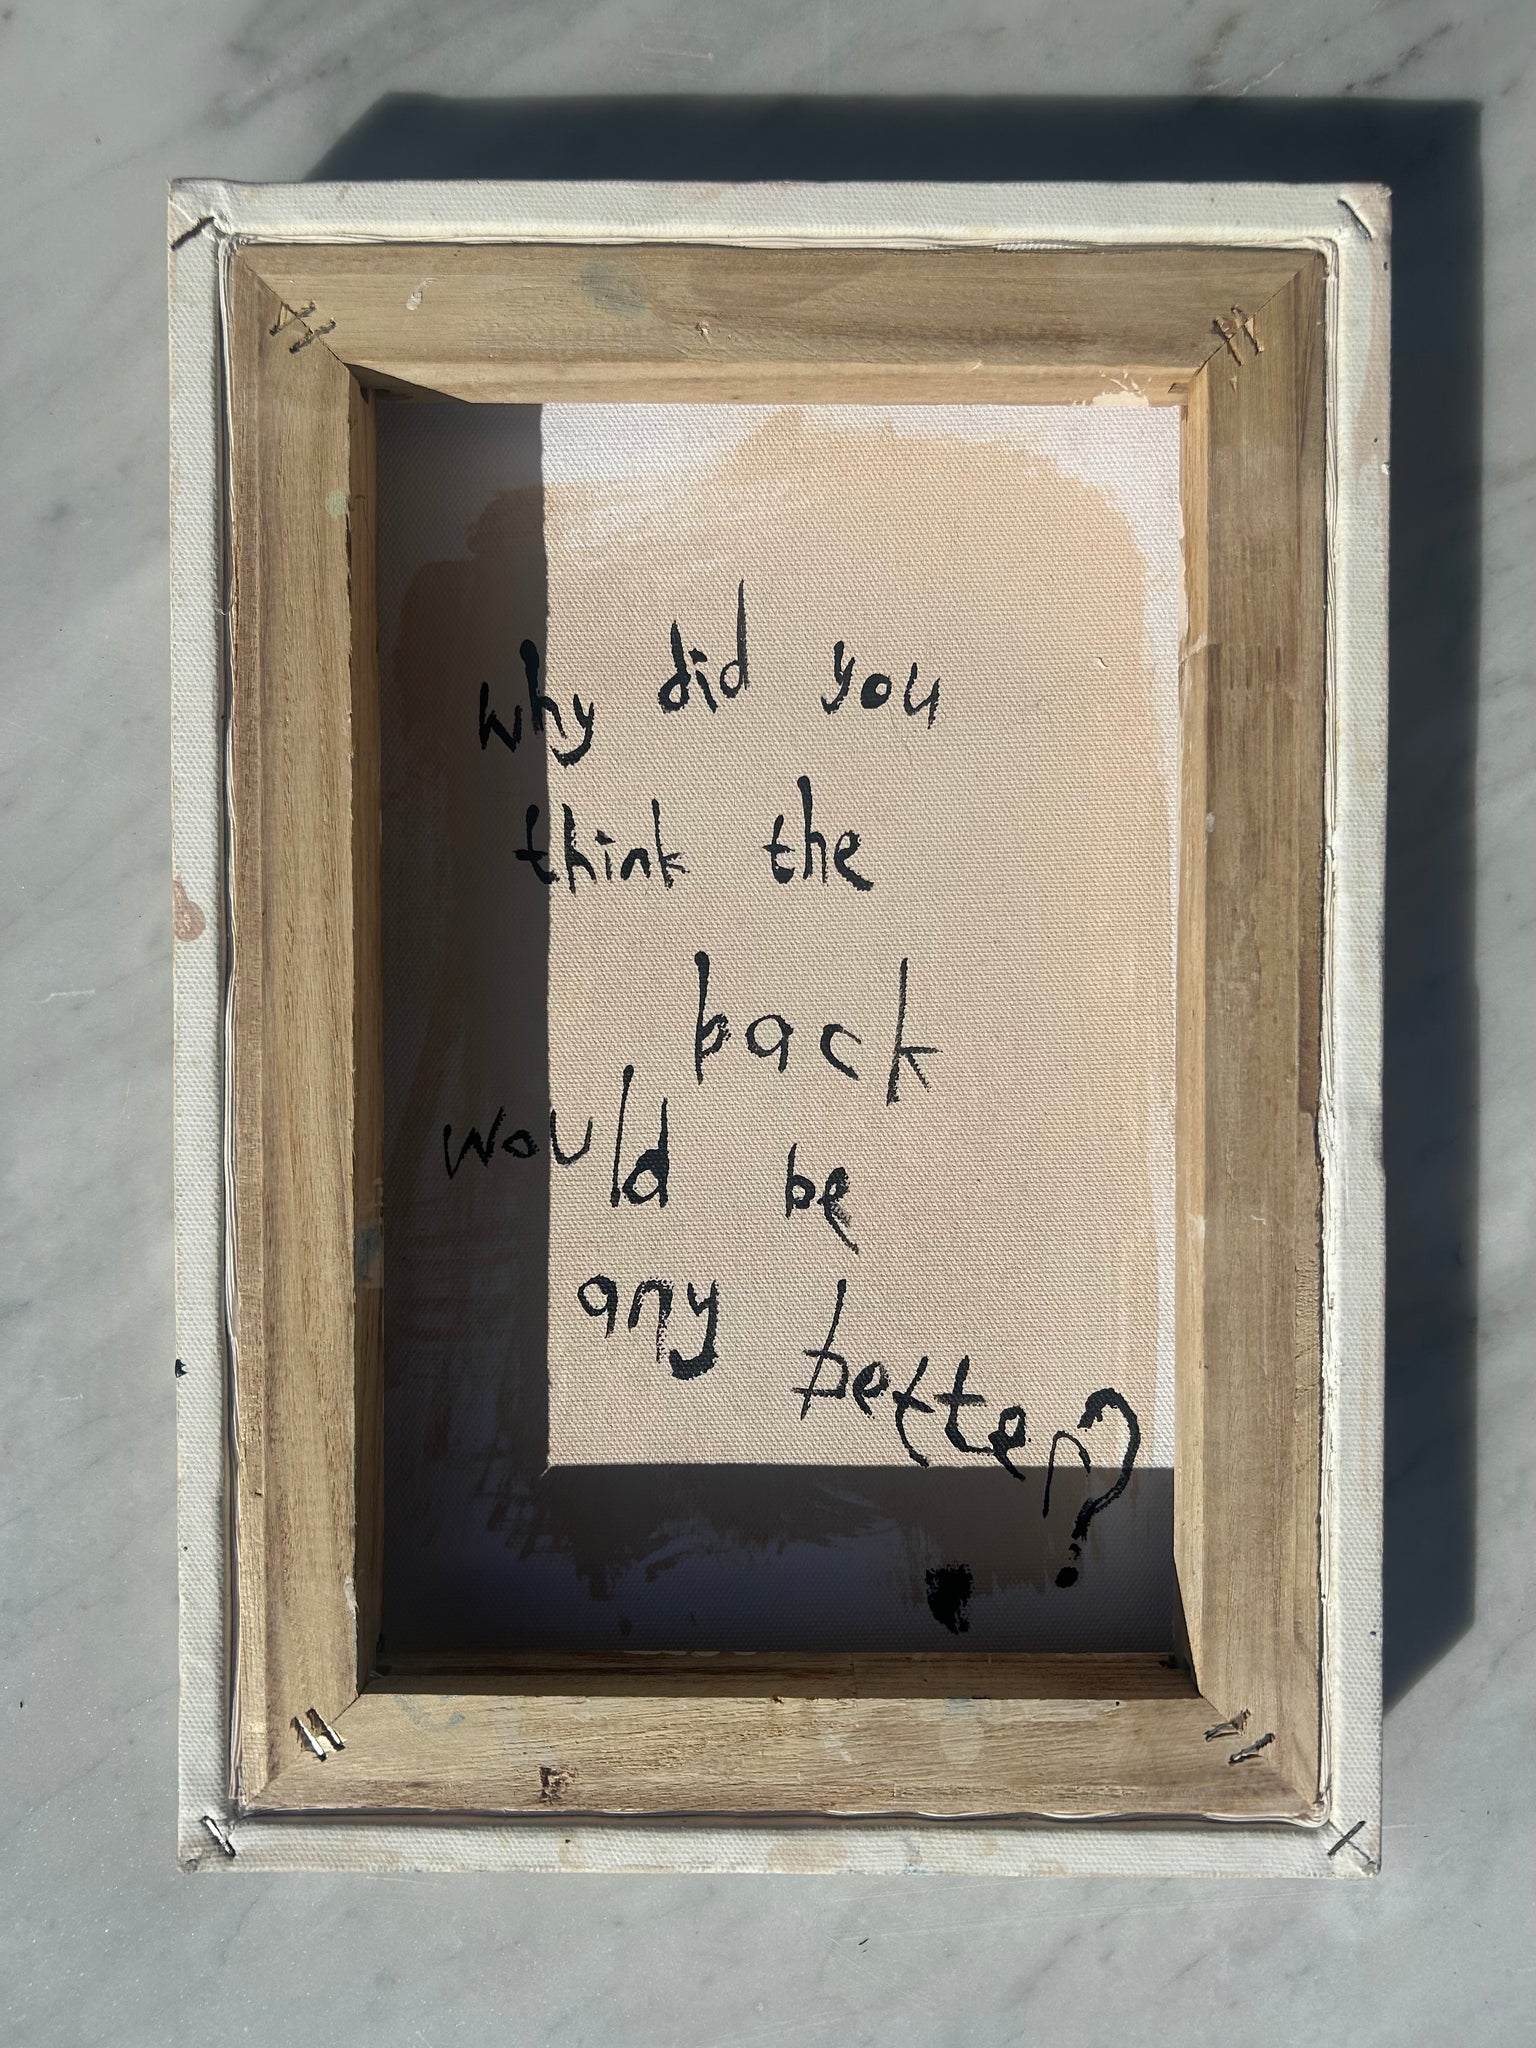 why did you
think the
back
would be
any better?